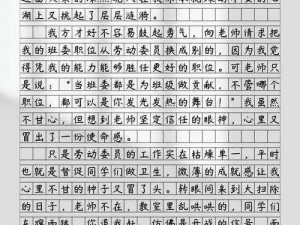 湖上又挑起了层层涟漪。
我方才好不容易鼓起勇气,向老师请求把
我的班委职位从劳动委员换成别的,因为我觉
得凭我的能力能够胜任更好的职位。可老师只
是说:“当班委都是为班级做贡献,不管哪个
职位,都可以是你发光发热的舞台!”我虽然
不甘心,但想到老师坚定信任的眼神,心里又
冒出了一份使命感。
只是劳动委员的工作实在枯燥单一,平时
也就是督促同学们做卫生,微薄的成就感让我
心里不甘的种子又冒了头。转眼间来到大扫除
的日子,老师不在,教室里乱哄哄的,同学们